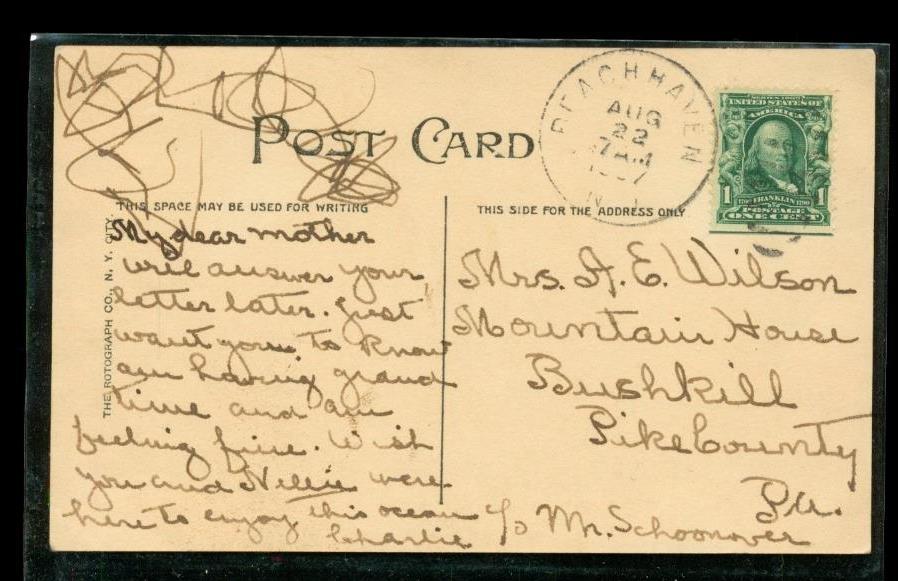 POST CARD
THIS SPACE MAY BE USED FOR WRITING
THIS SIDE FOR THE ADDRESS ONLY
THE ROTOGRAPH CO., N. Y. CITY.
BEACH HAVEN
AUG
22
7 AM
1907
N. J.
SERIES 1902
UNITED STATES OF
AMERICA
1 FRANKLIN 1
1706 1790
POSTAGE
ONE CENT
My dear mother
will answer your
letter later. Just
want you to know
am having grand
time and am
feeling fine. Wish
you and Nellie were
here to enjoy this ocean
Charlie
Mrs. A. E. Wilson
Mountain House
Bushkill
Pike County
Pa.
c/o Mr. Schoonover